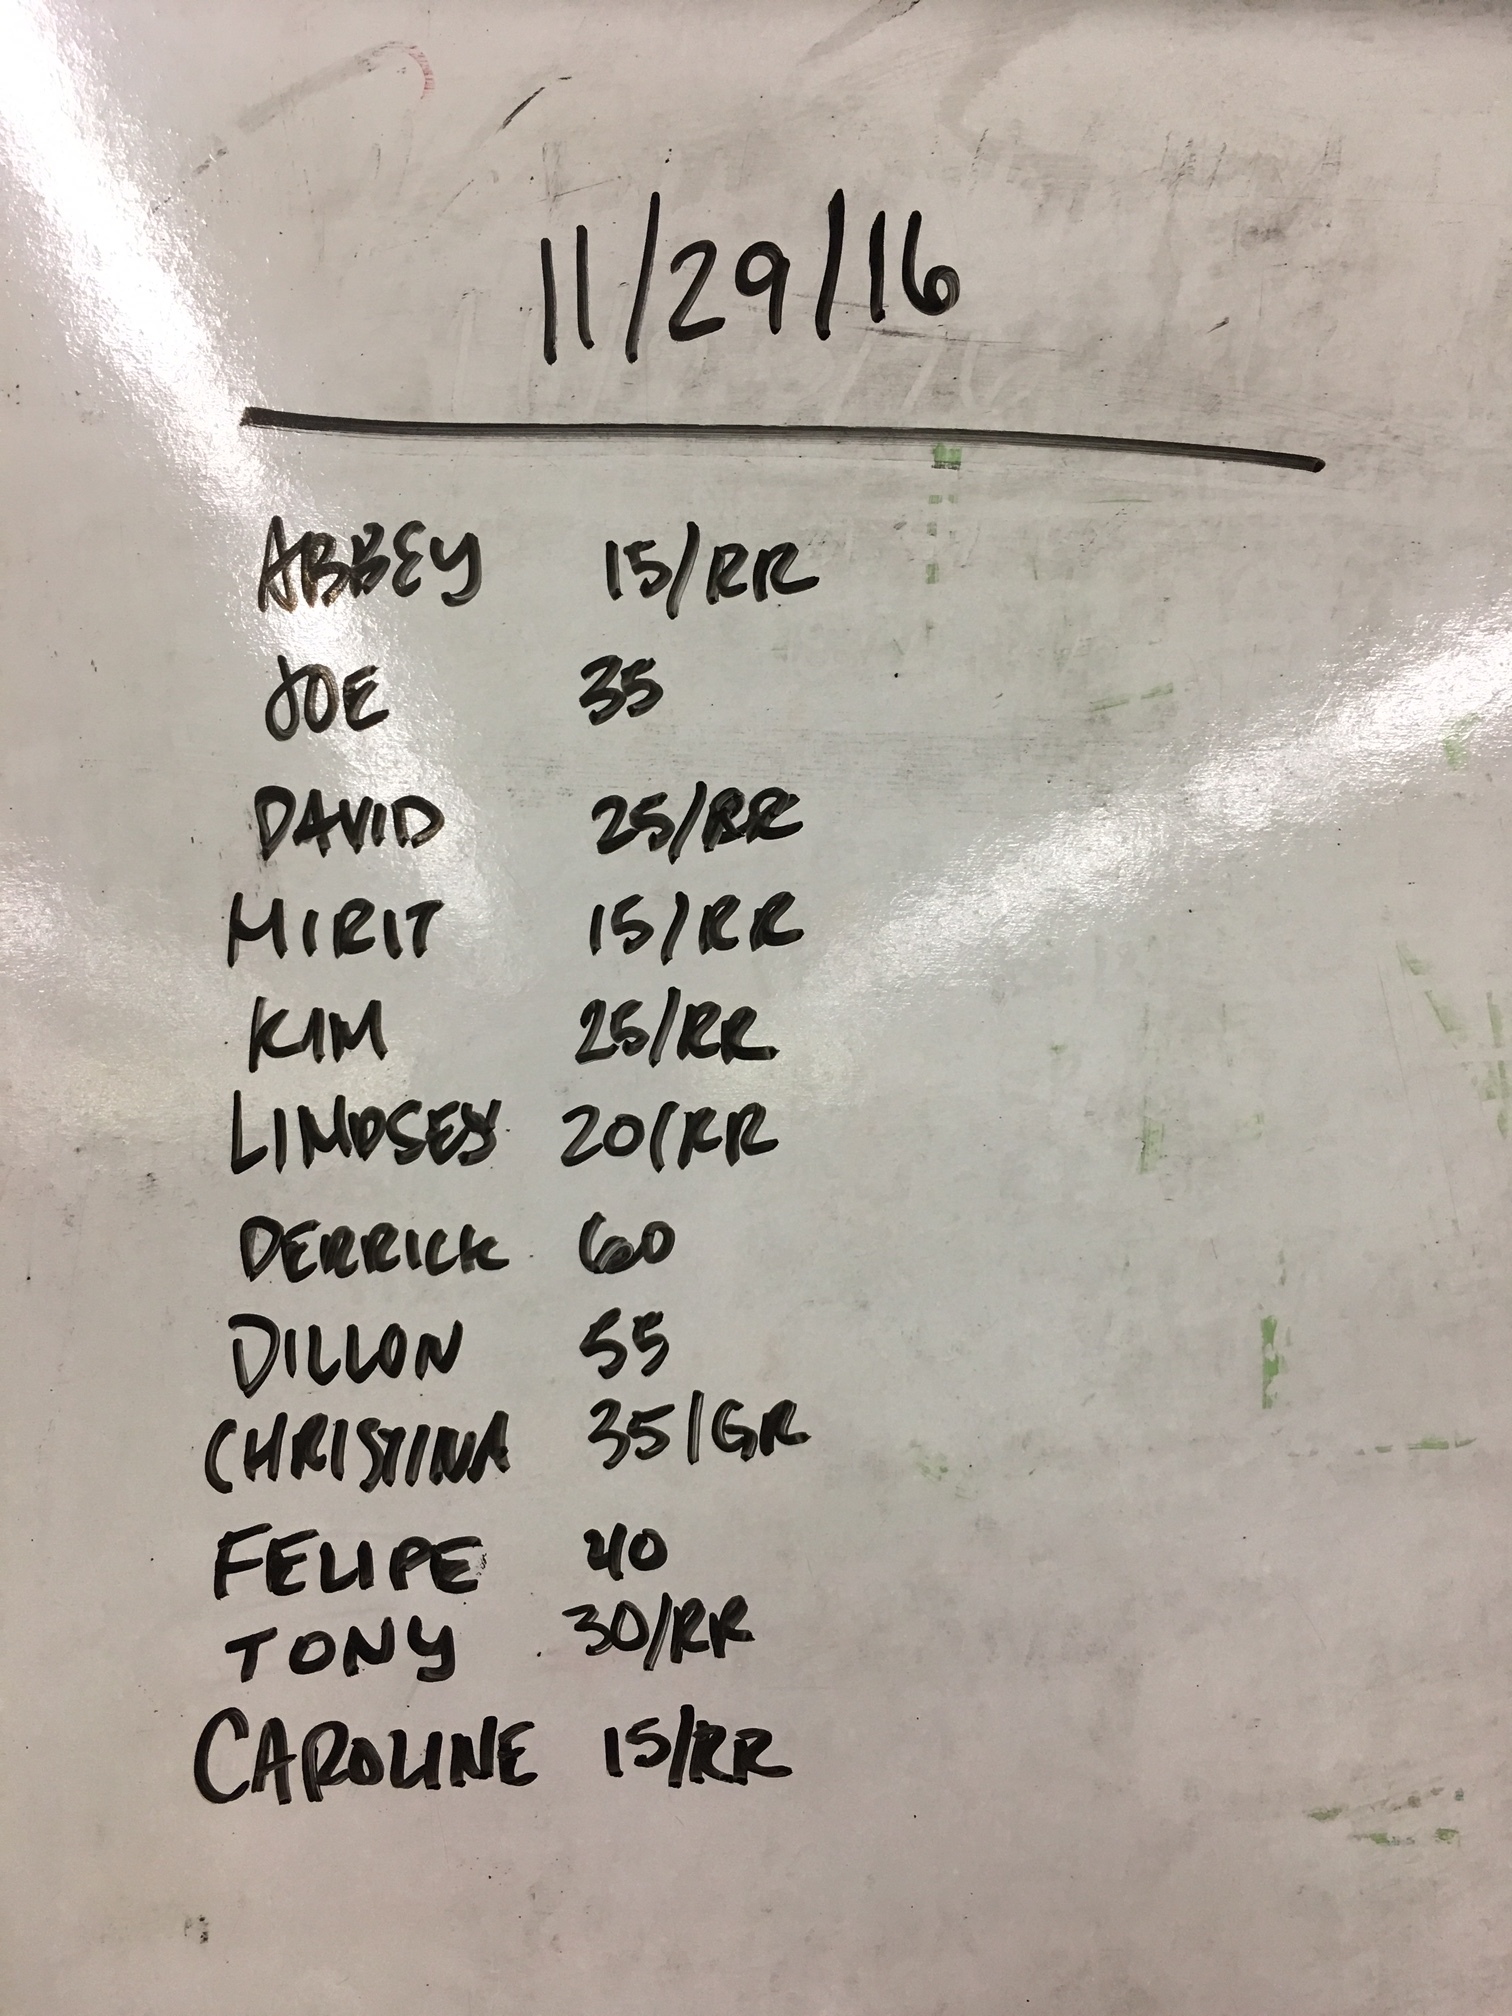 11/29/16
ABBEY 15/RR
JOE 35
DAVID 25/RR
MIRIT 15/RR
KIM 25/RR
LINDSEY 20/RR
DERRICK 60
DILLON 55
CHRISTINA 35/GR
FELIPE 40
TONY 30/RR
CAROLINE 15/RR